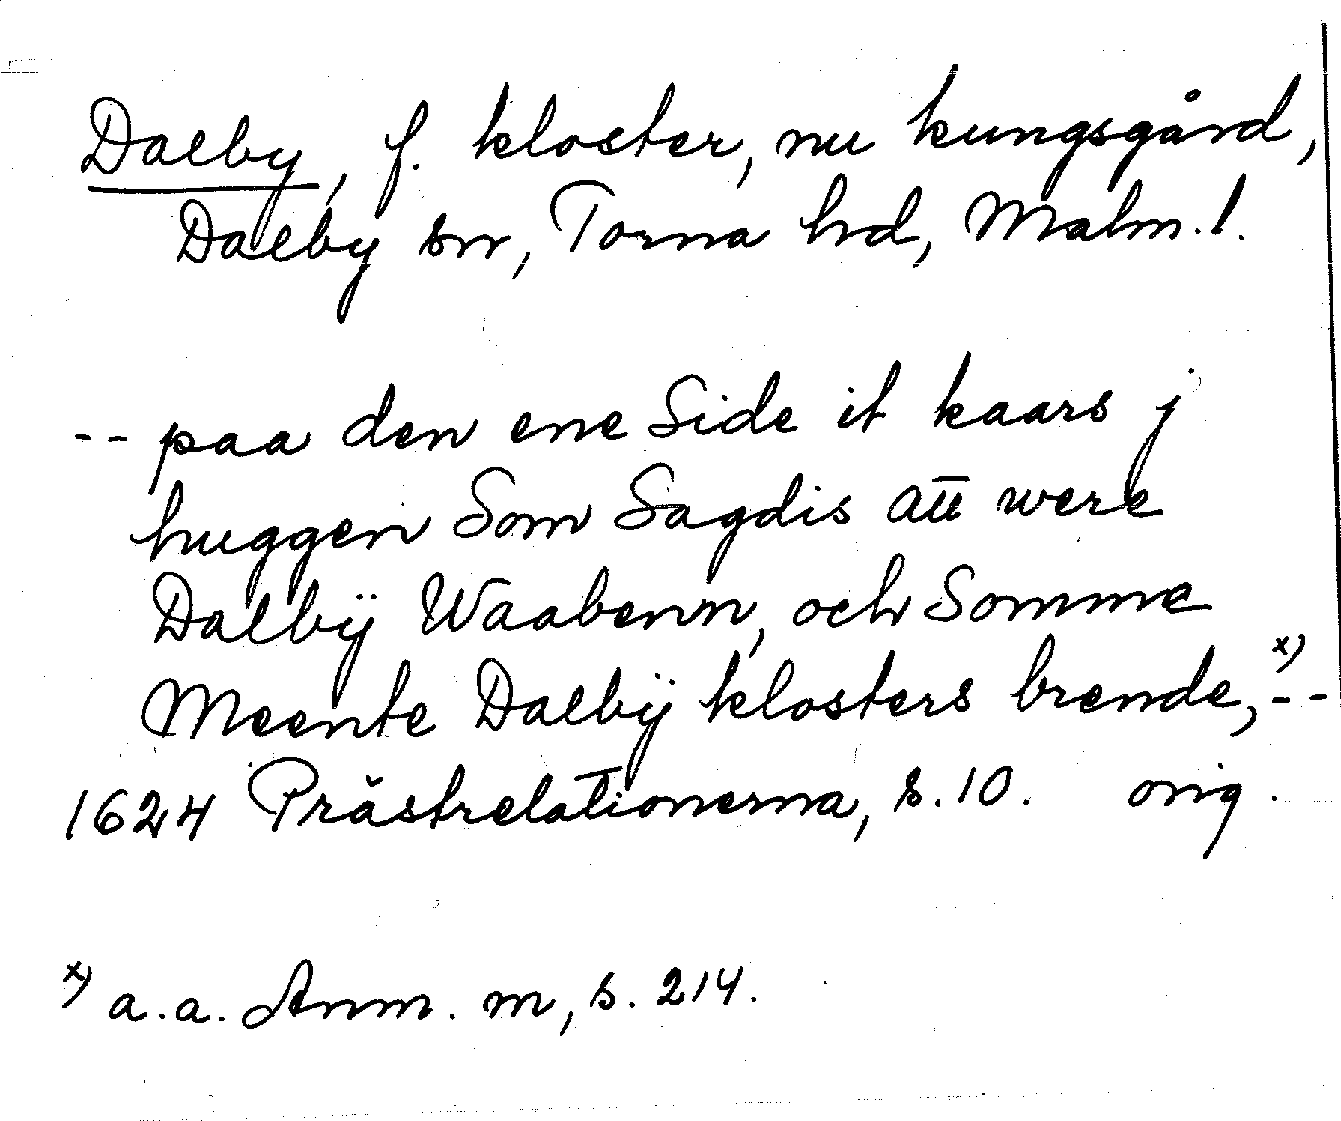 Dalby, f. kloster, nu kungsgård,
Dalby sn, Torna hd, Malm. l.
-- paa den ene Side it kaars j
huggen Som Sagdis att were
Dalbÿ Waabenn, och Somme
Meente Dalbÿ klosters brende, x) --
1624 Prästrelationerna, s. 10. orig.
x) a.a. Anm. m, s. 214.